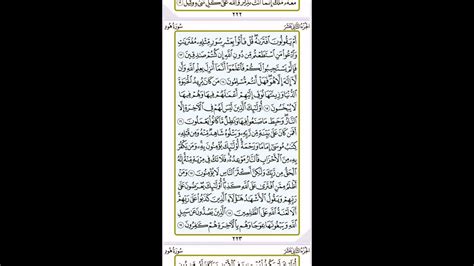 مَعَهُۥ مَلَكٌۚ إِنَّمَآ أَنتَ نَذِيرٌۚ وَٱللَّهُ عَلَىٰ كُلِّ شَىْءٍ وَكِيلٌ ١٢
٢٢٢
الجزء الثاني عشر سورة هود
أَمْ يَقُولُونَ ٱفْتَرَىٰهُۖ قُلْ فَأْتُوا۟ بِعَشْرِ سُوَرٍ مِّثْلِهِۦ مُفْتَرَيَٰتٍ
وَٱدْعُوا۟ مَنِ ٱسْتَطَعْتُم مِّن دُونِ ٱللَّهِ إِن كُنتُمْ صَٰدِقِينَ ١٣
فَإِلَّمْ يَسْتَجِيبُوا۟ لَكُمْ فَٱعْلَمُوٓا۟ أَنَّمَآ أُنزِلَ بِعِلْمِ ٱللَّهِ وَأَن
لَّآ إِلَٰهَ إِلَّا هُوَۖ فَهَلْ أَنتُم مُّسْلِمُونَ ١٤ مَن كَانَ يُرِيدُ ٱلْحَيَوٰةَ
ٱلدُّنْيَا وَزِينَتَهَا نُوَفِّ إِلَيْهِمْ أَعْمَٰلَهُمْ فِيهَا وَهُمْ فِيهَا
لَا يُبْخَسُونَ ١٥ أُو۟لَٰٓئِكَ ٱلَّذِينَ لَيْسَ لَهُمْ فِى ٱلْءَاخِرَةِ إِلَّا
ٱلنَّارُۖ وَحَبِطَ مَا صَنَعُوا۟ فِيهَا وَبَٰطِلٌ مَّا كَانُوا۟ يَعْمَلُونَ ١٦
أَفَمَن كَانَ عَلَىٰ بَيِّنَةٍ مِّن رَّبِّهِۦ وَيَتْلُوهُ شَاهِدٌ مِّنْهُ وَمِن قَبْلِهِۦ
كِتَٰبُ مُوسَىٰٓ إِمَامًا وَرَحْمَةًۚ أُو۟لَٰٓئِكَ يُؤْمِنُونَ بِهِۦۚ وَمَن يَكْفُرْ بِهِۦ
مِنَ ٱلْأَحْزَابِ فَٱلنَّارُ مَوْعِدُهُۥۚ فَلَا تَكُ فِى مِرْيَةٍ مِّنْهُۚ إِنَّهُ
ٱلْحَقُّ مِن رَّبِّكَ وَلَٰكِنَّ أَكْثَرَ ٱلنَّاسِ لَا يُؤْمِنُونَ ١٧ وَمَنْ
أَظْلَمُ مِمَّنِ ٱفْتَرَىٰ عَلَى ٱللَّهِ كَذِبًاۚ أُو۟لَٰٓئِكَ يُعْرَضُونَ عَلَىٰ
رَبِّهِمْ وَيَقُولُ ٱلْأَشْهَٰدُ هَٰٓؤُلَآءِ ٱلَّذِينَ كَذَبُوا۟ عَلَىٰ رَبِّهِمْۚ
أَلَا لَعْنَةُ ٱللَّهِ عَلَى ٱلظَّٰلِمِينَ ١٨ ٱلَّذِينَ يَصُدُّونَ عَن سَبِيلِ
ٱللَّهِ وَيَبْغُونَهَا عِوَجًا وَهُم بِٱلْءَاخِرَةِ هُمْ كَٰفِرُونَ ١٩
٢٢٣
الجزء الثاني عشر سورة هود